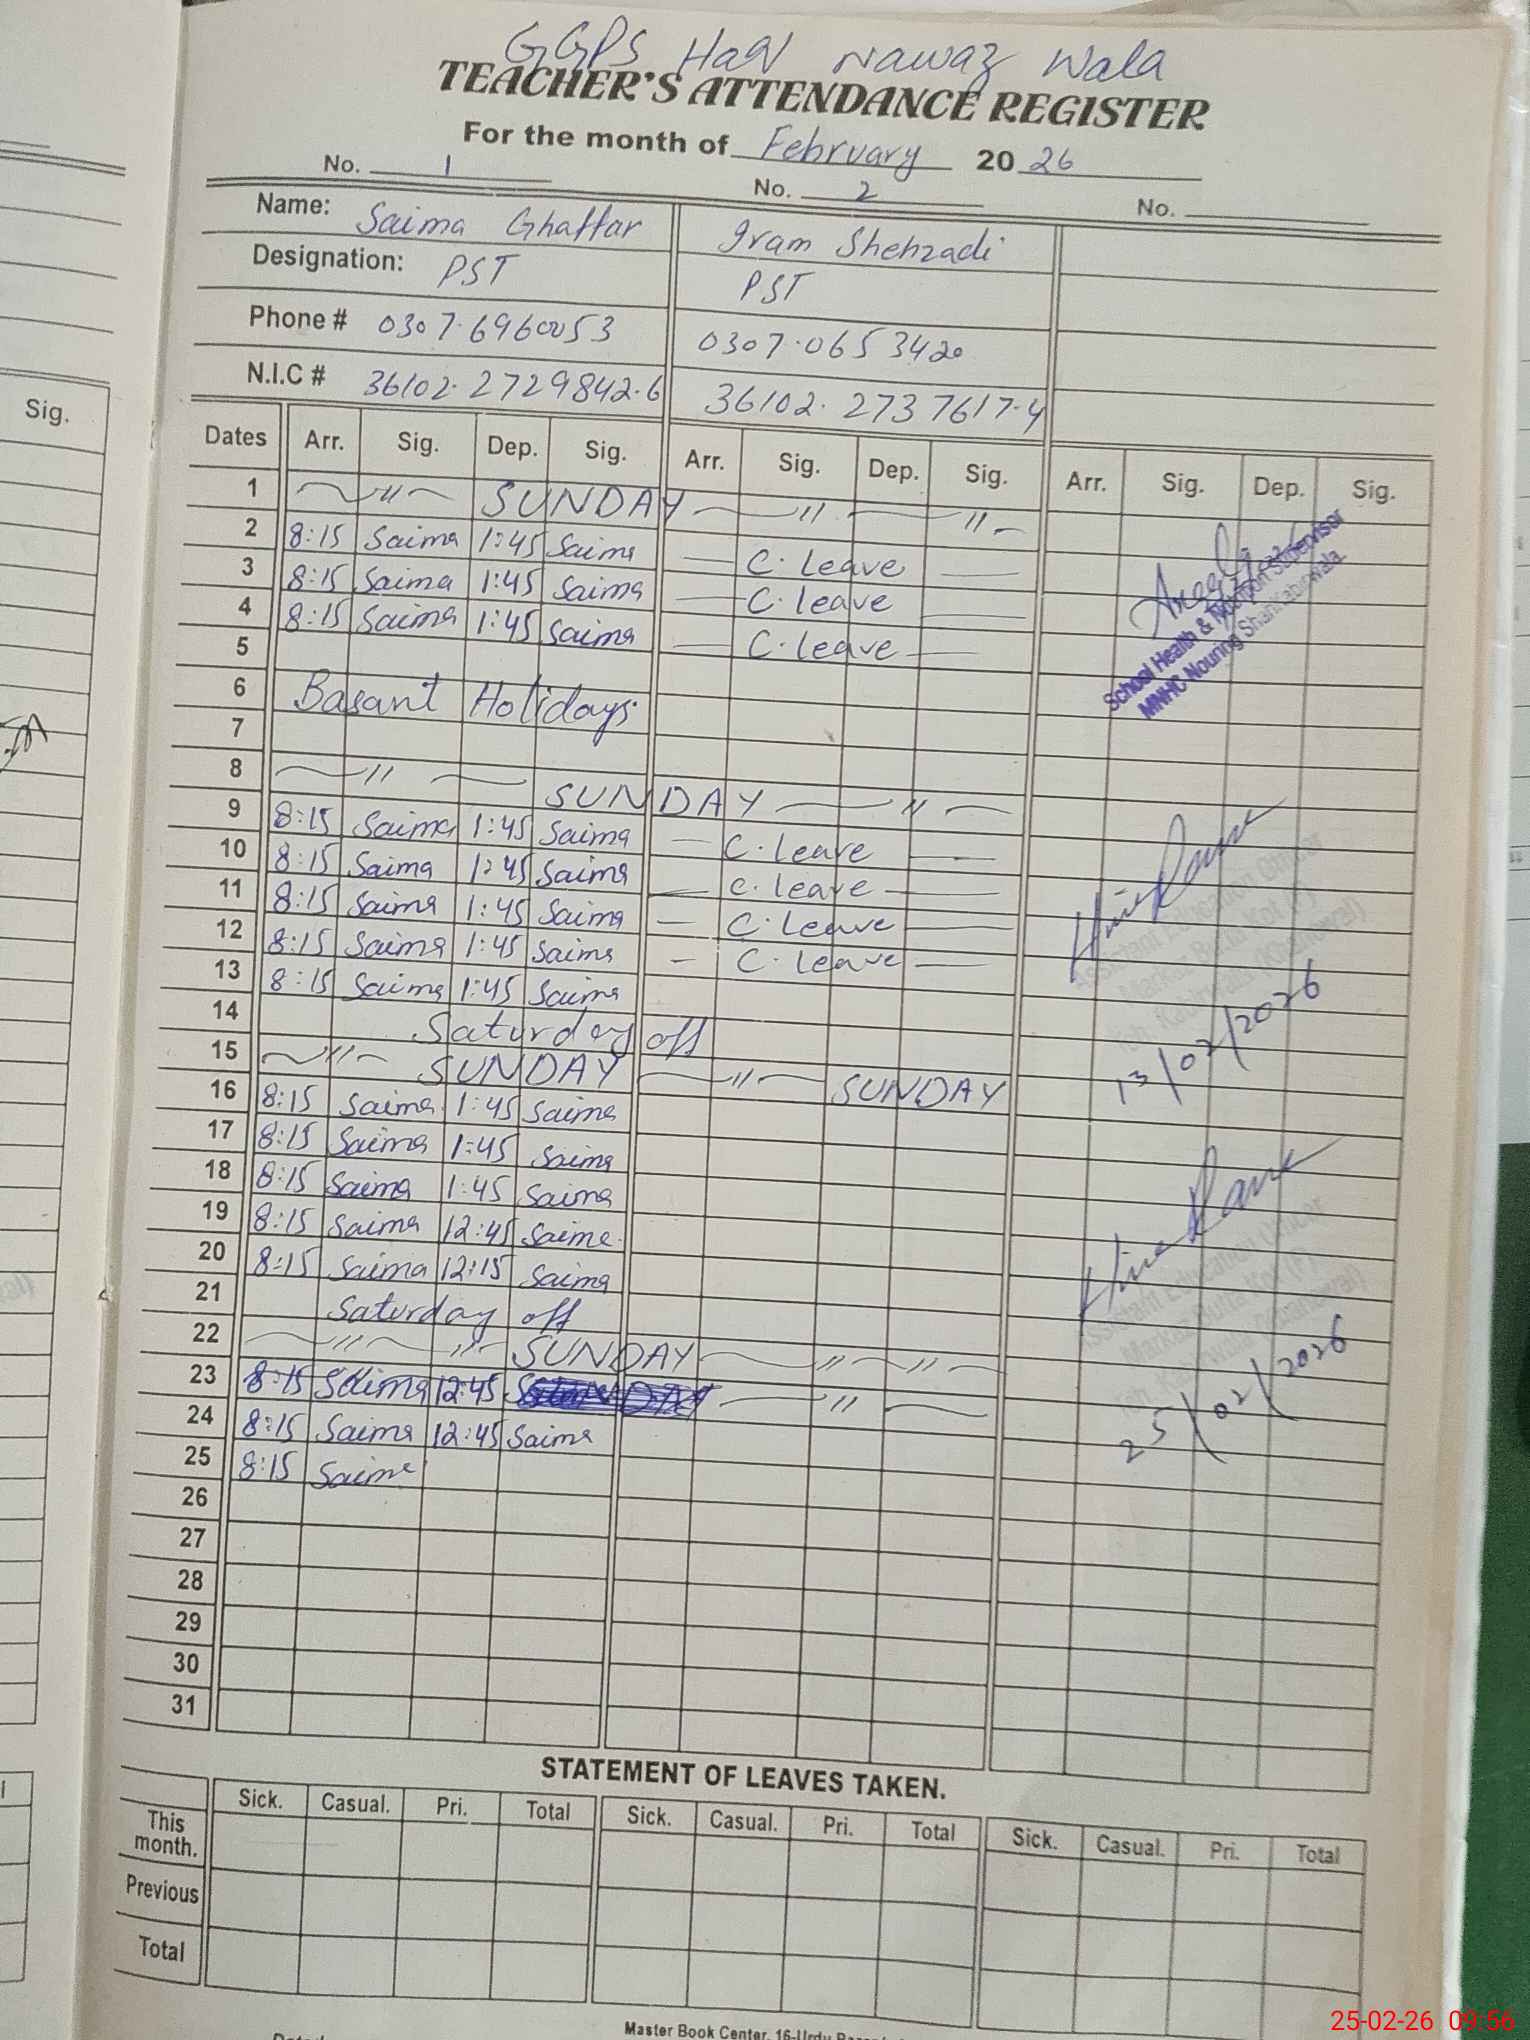 GGPS Haq Nawaz Wala
TEACHER'S ATTENDANCE REGISTER
For the month of February 20 26
No. 1 No. 2 No.
Name: Saima Ghaffar Iram Shehzadi
Designation: PST PST
Phone # 0307-6960053 0307-0653420
N.I.C # 36102-2729842-6 36102-2737617-4
Dates Arr. Sig. Dep. Sig. Arr. Sig. Dep. Sig. Arr. Sig. Dep. Sig.
1 〃 SUNDAY 〃 〃
2 8:15 Saima 1:45 Saima — C. Leave —
3 8:15 Saima 1:45 Saima — C. leave —
4 8:15 Saima 1:45 Saima — C. leave —
5
6 Basant Holidays
7
8 〃 SUNDAY 〃
9 8:15 Saima 1:45 Saima — C. leave —
10 8:15 Saima 1:45 Saima — C. leave —
11 8:15 Saima 1:45 Saima — C. leave —
12 8:15 Saima 1:45 Saima — C. leave —
13 8:15 Saima 1:45 Saima
14 Saturday off
15 〃 SUNDAY 〃 SUNDAY
16 8:15 Saima 1:45 Saima
17 8:15 Saima 1:45 Saima
18 8:15 Saima 1:45 Saima
19 8:15 Saima 12:45 Saima
20 8:15 Saima 12:15 Saima
21 Saturday off
22 〃 〃 SUNDAY 〃 〃
23 8:15 Saima 12:45 〃
24 8:15 Saima 12:45 Saima
25 8:15 Saima
26
27
28
29
30
31
School Health & Nutrition Supervisor
MNHC
Assistant Education Officer
Markaz Butta Kot (F)
13/02/2026
Assistant Education Officer
Markaz Butta Kot (F)
25/02/2026
STATEMENT OF LEAVES TAKEN.
Sick. Casual. Pri. Total Sick. Casual. Pri. Total Sick. Casual. Pri. Total
This month.
Previous
Total
Master Book Center, 16-Urdu
Sig.
25-02-26 09:56